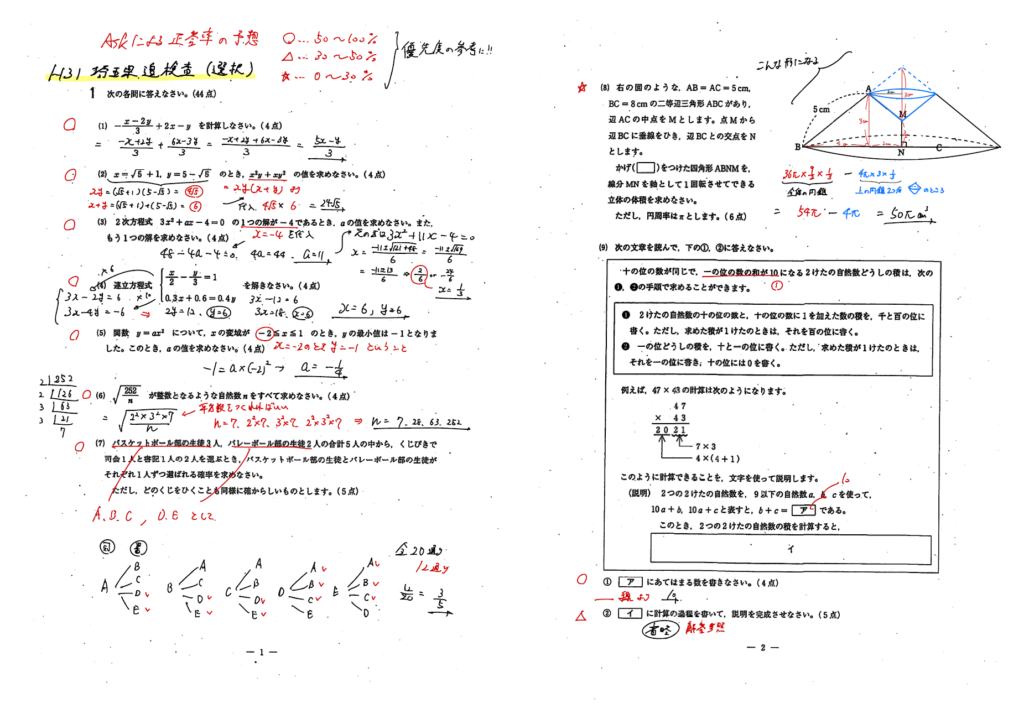 Askによる正答率の予想
○…50～100%
△…30～50%
☆…0～30%
優先度の参考に!!
H31 埼玉県 追検査（選択）
1 次の各問に答えなさい。（44点）
(1) −(x−2y)/3＋2x−y を計算しなさい。（4点）
= (−x+2y)/3 + (6x−3y)/3 = (−x+2y+6x−3y)/3 = (5x−y)/3
(2) x=√5＋1, y=5−√5 のとき, x²y＋xy² の値を求めなさい。（4点）
xy=(√5+1)(5−√5)=4√5
= xy(x+y) より
x+y=(√5+1)+(5−√5)=6
代入 4√5×6 = 24√5
(3) 2次方程式 3x²＋ax−4＝0 の1つの解が−4であるとき, aの値を求めなさい。また,
もう1つの解を求めなさい。（4点）
x=−4を代入
元の式は 3x²+11x−4=0
48−4a−4=0, 4a=44, a=11
x= (−11±√121+48)/6 = (−11±√169)/6
= (−11±13)/6 ⇒ 2/6 or −24/6
x= 1/3
(4) 連立方程式 { x/2 − y/3 = 1
0.3x＋0.6＝0.4y を解きなさい。（4点）
×6
×10
3x−2y=6
3x−4y=−6 ⇒ 2y=12, y=6
3x−12=6
3x=18, x=6
x=6, y=6
(5) 関数 y＝ax² について, xの変域が −2≦x≦1 のとき, yの最小値は−1となりま
した。このとき, aの値を求めなさい。（4点） x=−2のときy=−1ということ
−1=a×(−2)² → a=−1/4
(6) √252/n が整数となるような自然数nをすべて求めなさい。（4点）
2 | 252
2 | 126
3 | 63
3 | 21
7
= √2²×3²×7/n
平方数をつくればいい
n=7, 2²×7, 3²×7, 2²×3²×7 ⇒ n=7, 28, 63, 252
(7) バスケットボール部の生徒3人, バレーボール部の生徒2人の合計5人の中から, くじびきで
司会1人と書記1人の2人を選ぶとき, バスケットボール部の生徒とバレーボール部の生徒が
それぞれ1人ずつ選ばれる確率を求めなさい。
ただし, どのくじをひくことも同様に確からしいものとします。（5点）
A, B, C, D, E として
司 書
A B C D E
B A C D E
C A B D E
D A B C E
E A B C D
全20通り
12通り
12/20 = 3/5
— 1 —
こんな形になる
(8) 右の図のような, AB＝AC＝5cm,
BC＝8cmの二等辺三角形ABCがあり,
辺ACの中点をMとします。点Mから
辺BCに垂線をひき, 辺BCとの交点をN
とします。
かげ（ ）をつけた四角形ABNMを,
線分MNを軸として1回転させてできる
立体の体積を求めなさい。
ただし, 円周率はπとします。（6点）
5cm
A
M
B
N
C
全体の円錐
4π×3×1/3
上の円錐2コ分 のところ
= 54π − 4π = 50π cm³
(9) 次の文章を読んで, 下の①, ②に答えなさい。
十の位の数が同じで, 一の位の数の和が10になる2けたの自然数どうしの積は, 次の
❶, ❷の手順で求めることができます。
①
❶ 2けたの自然数の十の位の数と, 十の位の数に1を加えた数の積を, 千と百の位に
書く。ただし, 求めた積が1けたのときは, それを百の位に書く。
❷ 一の位どうしの積を, 十と一の位に書く。ただし, 求めた積が1けたのときは,
それを一の位に書き, 十の位には0を書く。
例えば, 47×43の計算は次のようになります。
47
× 43
2021
7×3
4×(4+1)
このように計算できることを, 文字を使って説明します。
(説明) 2つの2けたの自然数を, 9以下の自然数a, b, cを使って,
10a＋b, 10a＋cと表すと, b＋c＝ ア である。
10
このとき, 2つの2けたの自然数の積を計算すると,
イ
① ア にあてはまる数を書きなさい。（4点）
題より 10
② イ に計算の過程を書いて, 説明を完成させなさい。（5点）
省略 解答参照
— 2 —